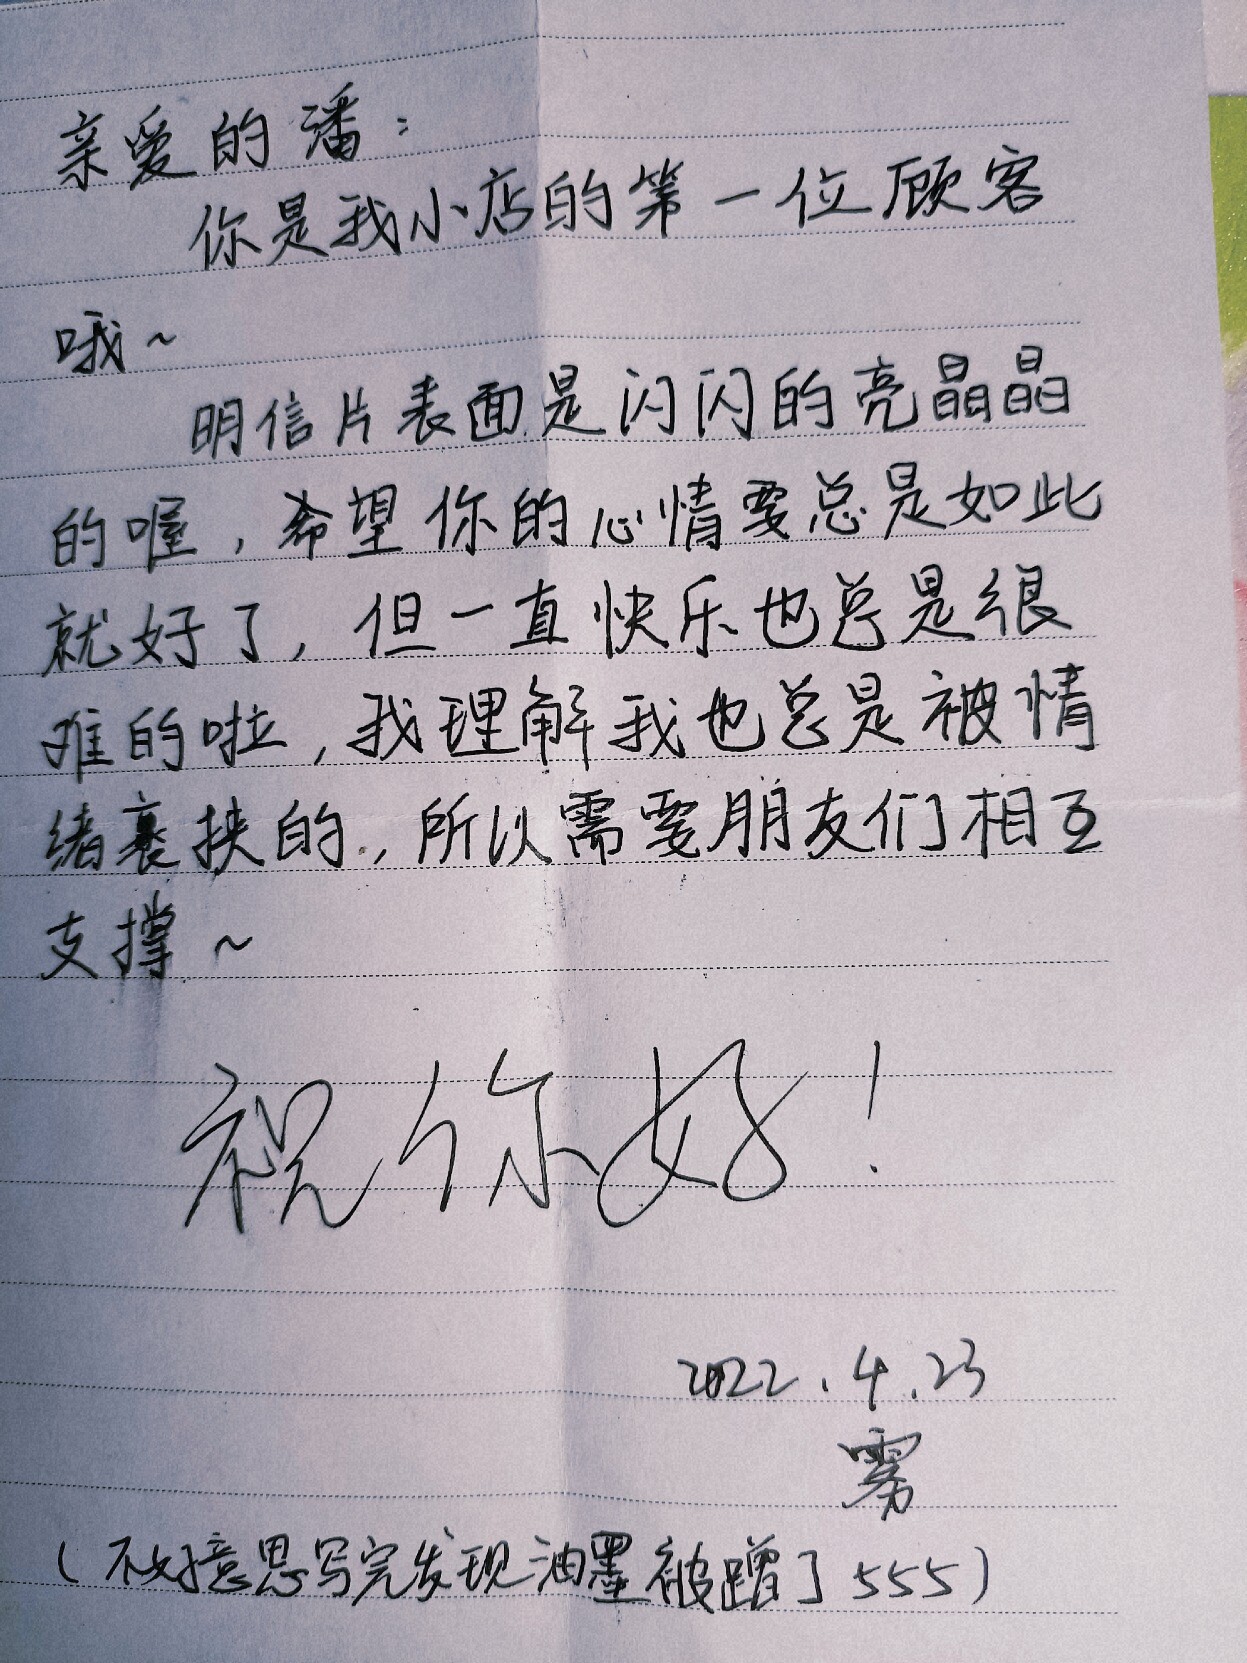 亲爱的潘：
你是我小店的第一位顾客
哦~
明信片表面是闪闪的亮晶晶
的喔，希望你的心情要总是如此
就好了，但一直快乐也总是很
难的啦，我理解我也总是被情
绪裹挟的，所以需要朋友们相互
支撑~
祝你好！
2022.4.23
雾
（不好意思写完发现油墨被蹭了555）